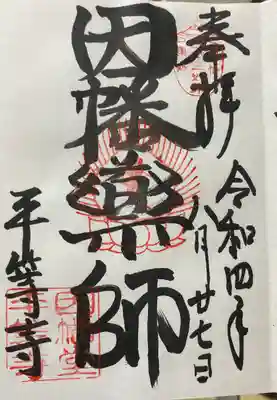 奉拝
令和四年
八月廿七日
因幡薬師
平等寺
因幡堂